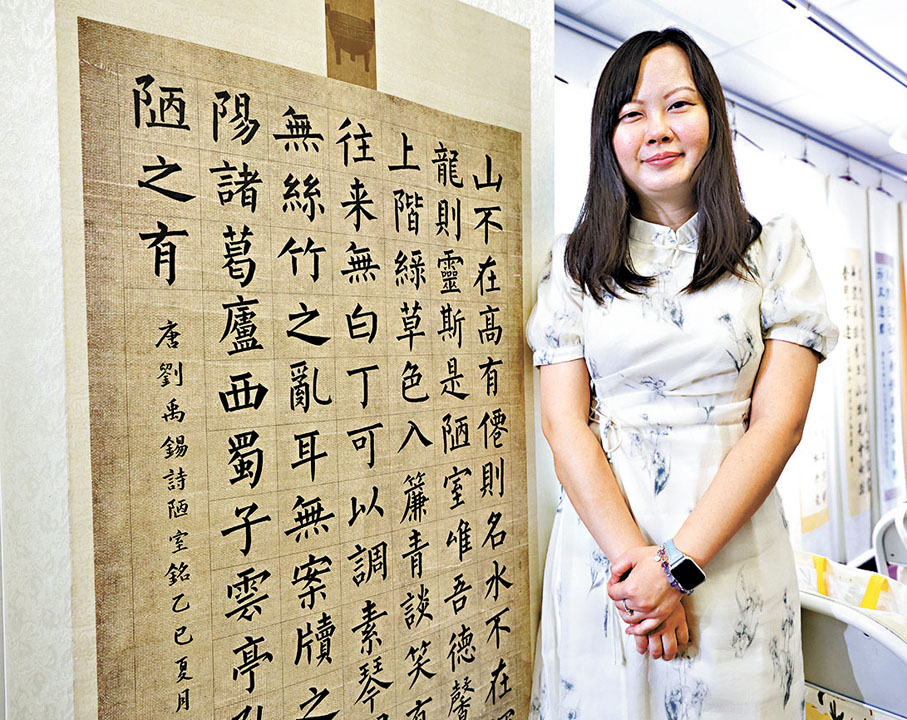 山不在高有僊則名水不在
龍則靈斯是陋室唯吾德馨
上階綠草色入簾青談笑有
往来無白丁可以調素琴
無絲竹之亂耳無案牘之
陽諸葛廬西蜀子雲亭孔
陋之有
唐劉禹錫詩陋室銘乙巳夏月